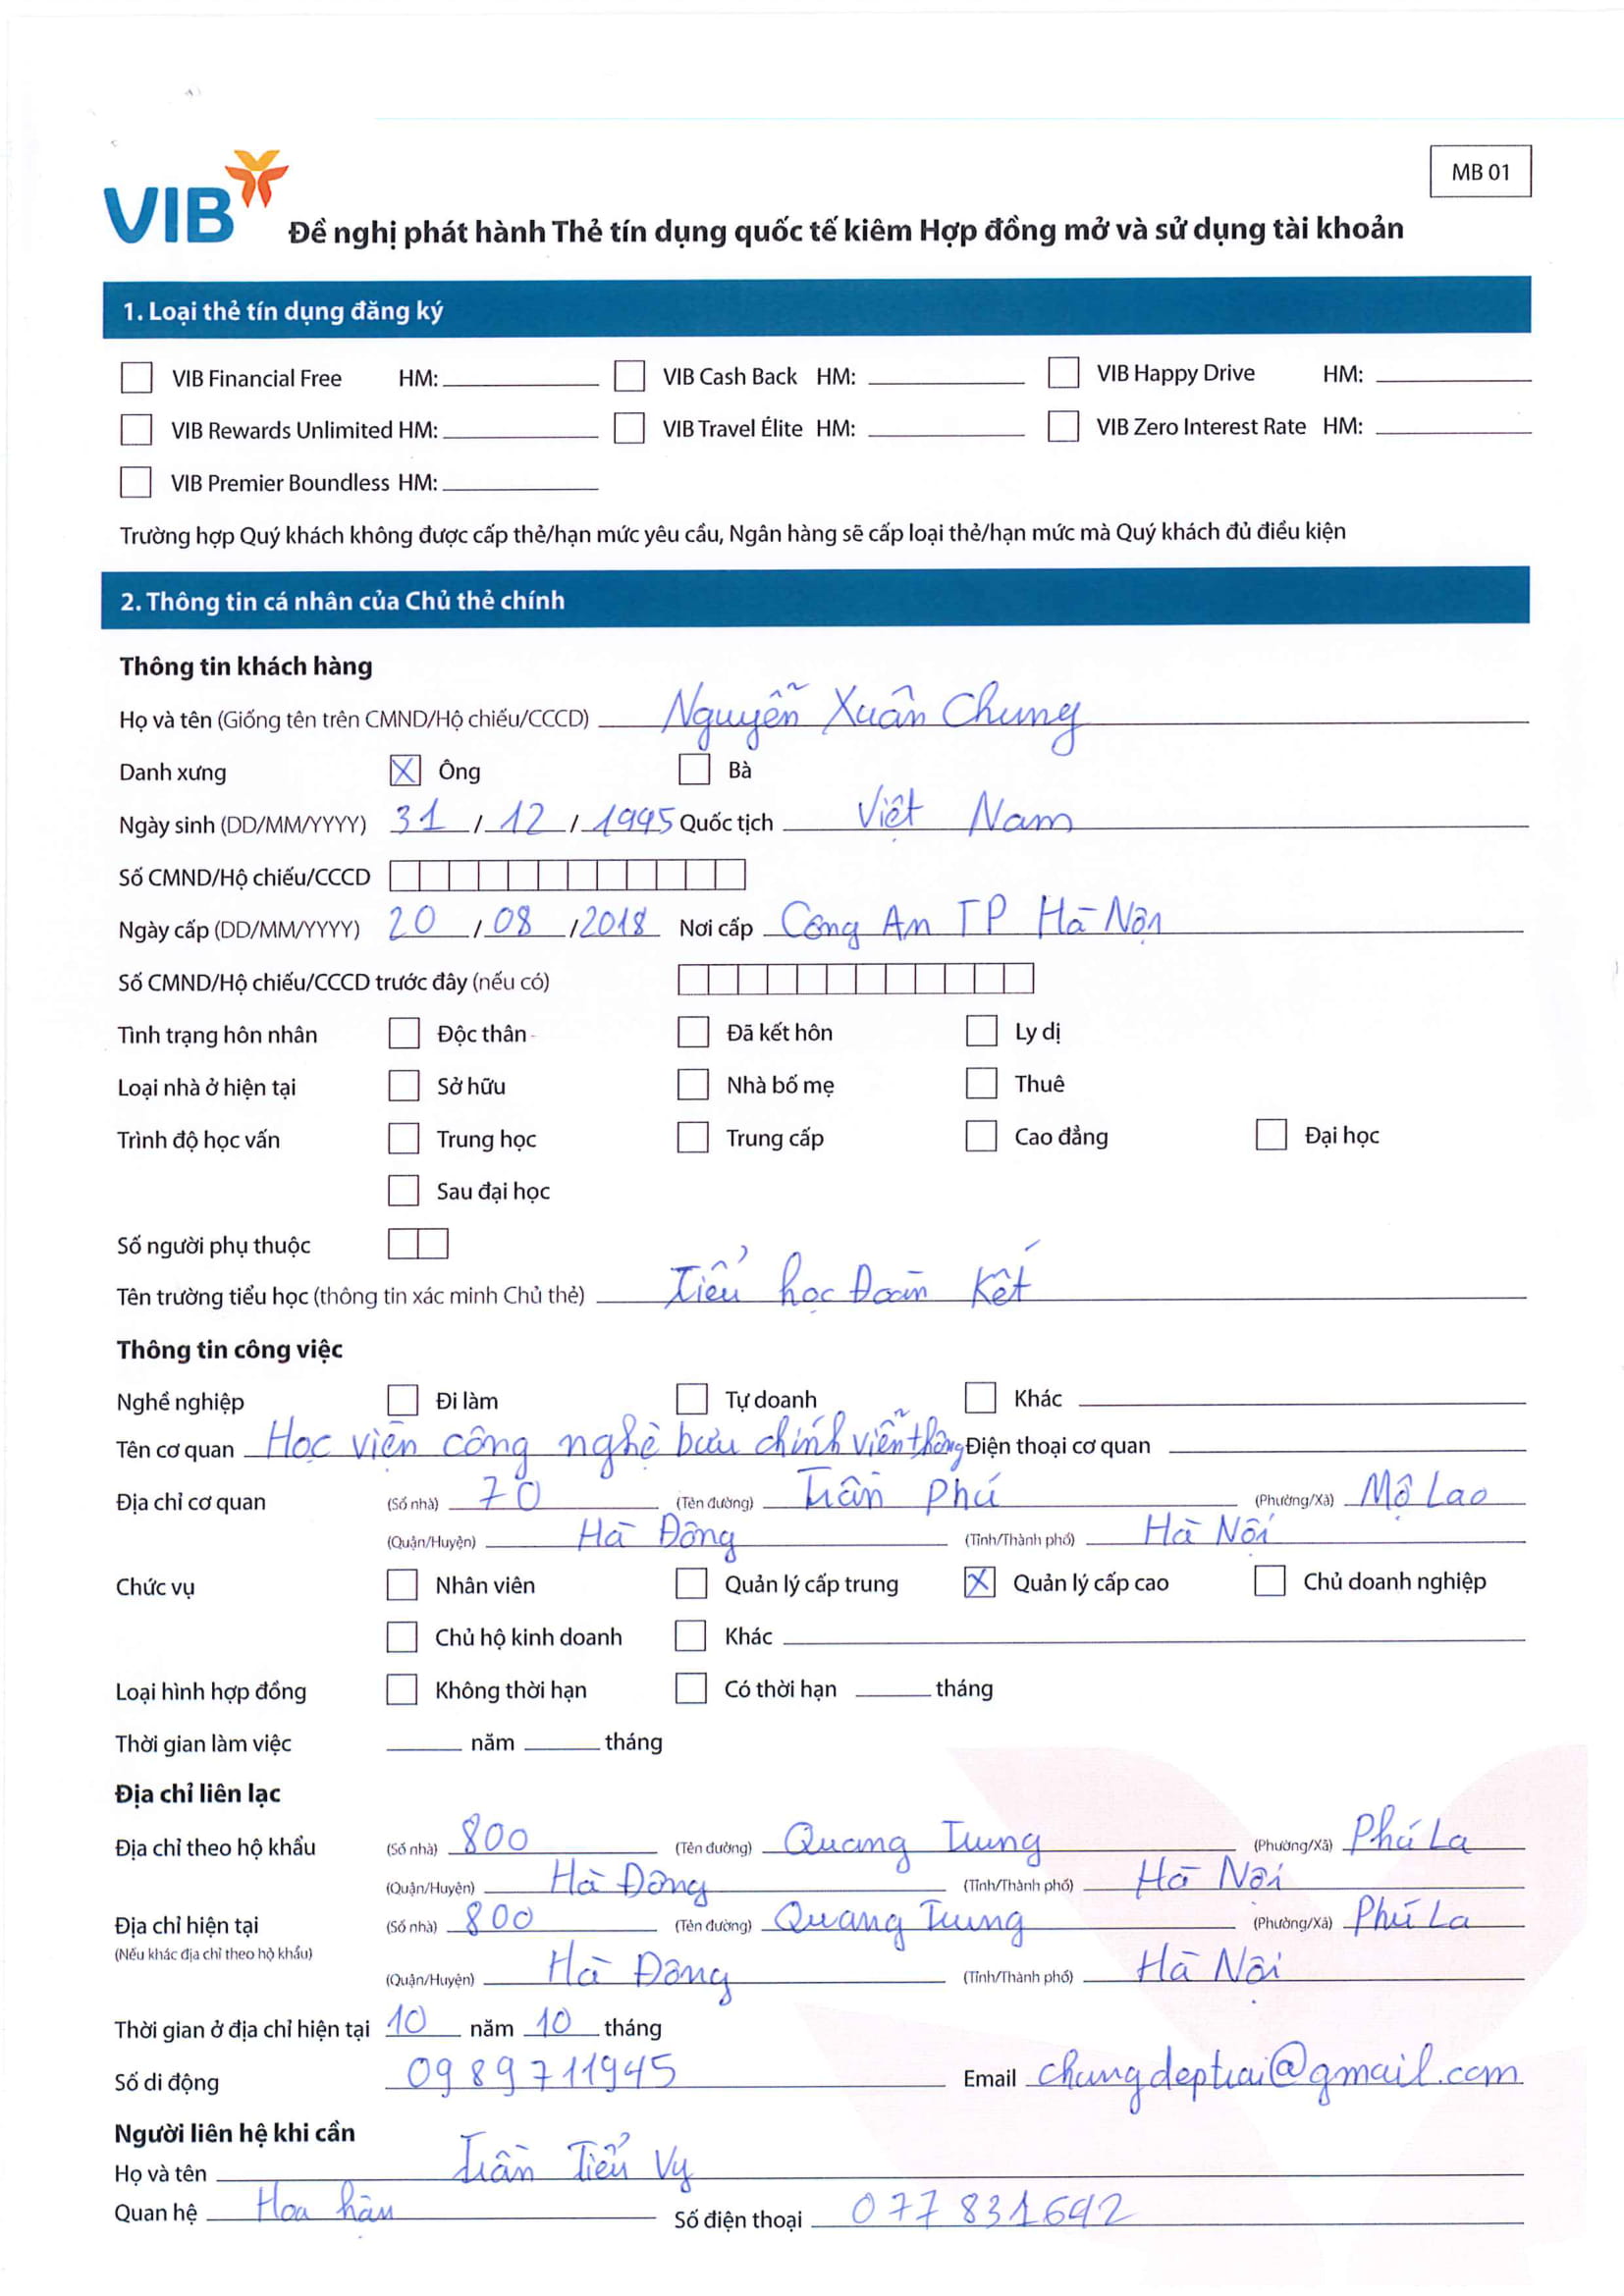 VIB
MB 01
Đề nghị phát hành Thẻ tín dụng quốc tế kiêm Hợp đồng mở và sử dụng tài khoản
1. Loại thẻ tín dụng đăng ký
VIB Financial Free HM: VIB Cash Back HM: VIB Happy Drive HM:
VIB Rewards Unlimited HM: VIB Travel Élite HM: VIB Zero Interest Rate HM:
VIB Premier Boundless HM:
Trường hợp Quý khách không được cấp thẻ/hạn mức yêu cầu, Ngân hàng sẽ cấp loại thẻ/hạn mức mà Quý khách đủ điều kiện
2. Thông tin cá nhân của Chủ thẻ chính
Thông tin khách hàng
Họ và tên (Giống tên trên CMND/Hộ chiếu/CCCD) Nguyễn Xuân Chung
Danh xưng X Ông Bà
Ngày sinh (DD/MM/YYYY) 31 / 12 / 1995 Quốc tịch Việt Nam
Số CMND/Hộ chiếu/CCCD
Ngày cấp (DD/MM/YYYY) 20 / 08 / 2018 Nơi cấp Công An TP Hà Nội
Số CMND/Hộ chiếu/CCCD trước đây (nếu có)
Tình trạng hôn nhân Độc thân Đã kết hôn Ly dị
Loại nhà ở hiện tại Sở hữu Nhà bố mẹ Thuê
Trình độ học vấn Trung học Trung cấp Cao đẳng Đại học
Sau đại học
Số người phụ thuộc
Tên trường tiểu học (thông tin xác minh Chủ thẻ) Tiểu học Đoàn Kết
Thông tin công việc
Nghề nghiệp Đi làm Tự doanh Khác
Tên cơ quan Học viện công nghệ bưu chính viễn thông Điện thoại cơ quan
Địa chỉ cơ quan (Số nhà) 70 (Tên đường) Trần Phú (Phường/Xã) Mộ Lao
(Quận/Huyện) Hà Đông (Tỉnh/Thành phố) Hà Nội
Chức vụ Nhân viên Quản lý cấp trung X Quản lý cấp cao Chủ doanh nghiệp
Chủ hộ kinh doanh Khác
Loại hình hợp đồng Không thời hạn Có thời hạn tháng
Thời gian làm việc năm tháng
Địa chỉ liên lạc
Địa chỉ theo hộ khẩu (Số nhà) 800 (Tên đường) Quang Trung (Phường/Xã) Phú La
(Quận/Huyện) Hà Đông (Tỉnh/Thành phố) Hà Nội
Địa chỉ hiện tại (Số nhà) 800 (Tên đường) Quang Trung (Phường/Xã) Phú La
(Nếu khác địa chỉ theo hộ khẩu)
(Quận/Huyện) Hà Đông (Tỉnh/Thành phố) Hà Nội
Thời gian ở địa chỉ hiện tại 10 năm 10 tháng
Số di động 0989711945 Email chungdeptrai@gmail.com
Người liên hệ khi cần
Họ và tên Trần Tiểu Vy
Quan hệ Hoa hậu Số điện thoại 077831642